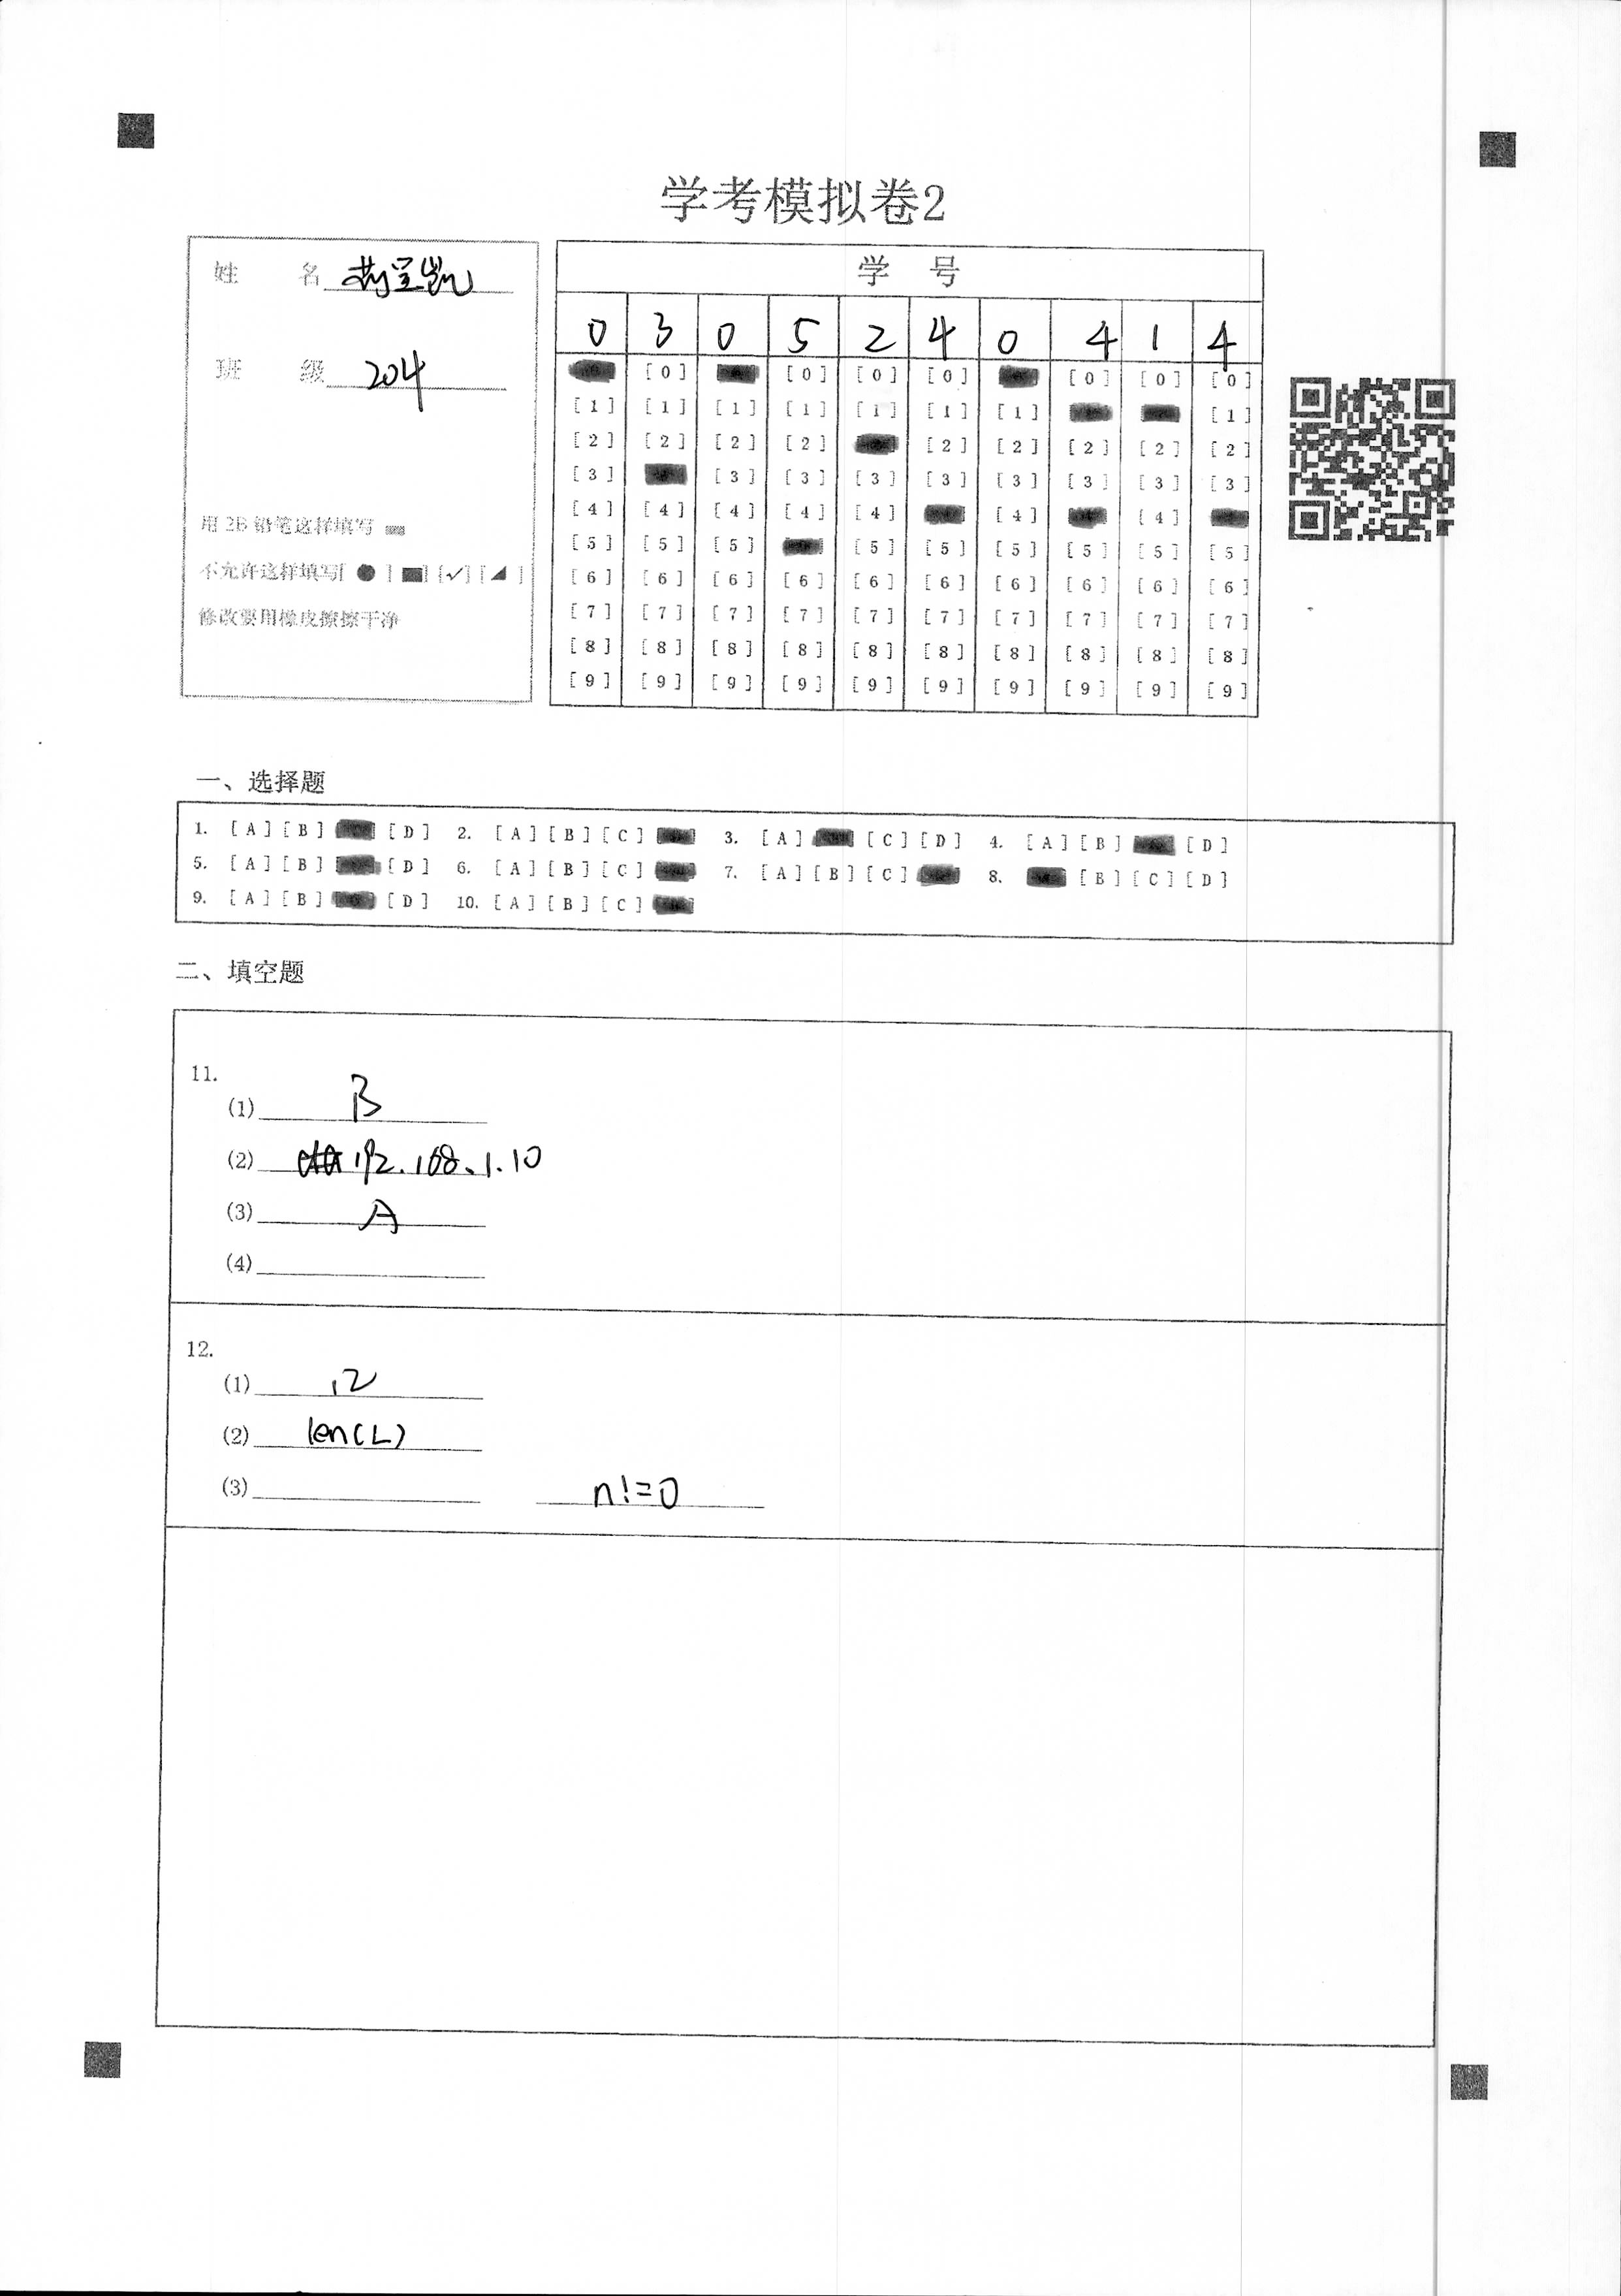 学考模拟卷2
姓 名
班 级 204
用 2B 铅笔这样填写
不允许这样填写[ ● ] ■] [✓] [◢ ]
修改要用橡皮擦擦干净
学 号
0 3 0 5 2 4 0 4 1 4
[0] [0] [0] [0] [0] [0] [0]
[1] [1] [1] [1] [1] [1] [1] [1]
[2] [2] [2] [2] [2] [2] [2] [2] [2]
[3] [3] [3] [3] [3] [3] [3] [3] [3]
[4] [4] [4] [4] [4] [4] [4]
[5] [5] [5] [5] [5] [5] [5] [5] [5]
[6] [6] [6] [6] [6] [6] [6] [6] [6] [6]
[7] [7] [7] [7] [7] [7] [7] [7] [7] [7]
[8] [8] [8] [8] [8] [8] [8] [8] [8] [8]
[9] [9] [9] [9] [9] [9] [9] [9] [9] [9]
一、选择题
1. [A] [B] [D] 2. [A] [B] [C] 3. [A] [C] [D] 4. [A] [B] [D]
5. [A] [B] [D] 6. [A] [B] [C] 7. [A] [B] [C] 8. [B] [C] [D]
9. [A] [B] [D] 10. [A] [B] [C]
二、填空题
11.
(1) B
(2) 192.168.1.10
(3) A
(4)
12.
(1) 12
(2) len(L)
(3) n!=0